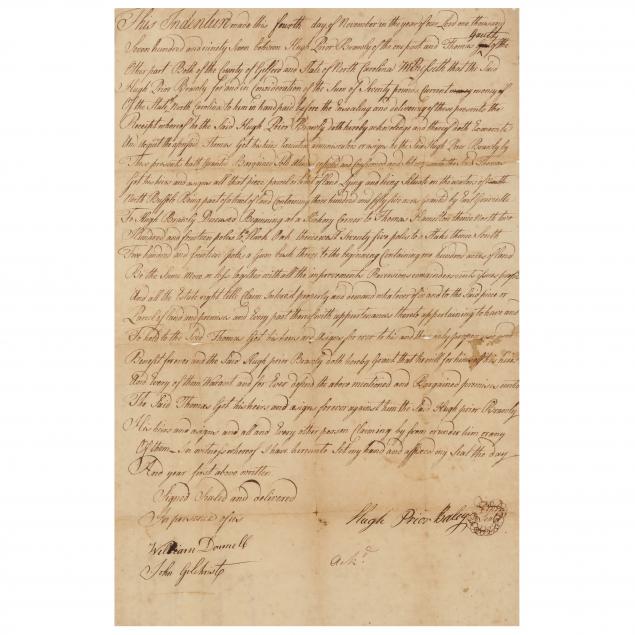 This Indenture made this fourth day of November in the year of our Lord one thousand
Seven hundred and ninety Seven between Hugh Prior Brawly of the one part and Thomas Gautt of the
Other part Both of the County of Gilford and State of North Carolina Witnesseth that the Said
Hugh Prior Brawly for and in Consideration of the Sum of Seventy pounds Current money of
Of the State North Carolina to him in hand paid before the Ensealing and delivering of these presents the
Receipt whereof to the Said Hugh Prior Brawly doth hereby acknowledge and thereof doth Exonerate
And acquit the aforesaid Thomas Got his heirs Executors administrators or asigns by the Said Hugh Prior Brawly by
These presents hath Granted Bargained Sold and Confirmed unto the Said Thomas
Got his heirs and asigns all that piece parcel of land Lying and being on the waters of
North Buffilo Being part of a tract of land Containing three hundred and fifty five acres granted by
To Hugh Brawly Deceased Beginning at a Hickory Corner to Thomas Hamilton thence North two
Hundred and fourteen poles to a Black Oak thence west Seventy five poles to a Stake thence South
Two hundred and fourteen poles a Gum bush thence to the beginning Containing one hundred acres of land
Be the Same More or less together with all the improvements
And all the Estate right title Claim Interest property and demand whatsoever of in and to the Said piece or
Parcel of land and premises and Every part thereof with appurtenances thereto appertaining to have and
To hold to the Said Thomas Got his heirs and asigns for ever to his and the only proper use and
Benefit forever and the Said Hugh prior Brawly doth hereby Grant that he will for him his heirs
And every of them Warant and for Ever defend the above mentioned and Bargained premises unto
The Said Thomas Got his heirs and asigns forever against him the Said Hugh prior Brawly
His heirs and asigns and all and Every other person Claiming by from or under him or any
Of them In witness whereof I have hereunto Set my hand and affixed my Seal the day
And year first above written
Signed Sealed and delivered
In presence of us
Hugh Prior Baley
William Donnell
John Gilchrist
Ackd